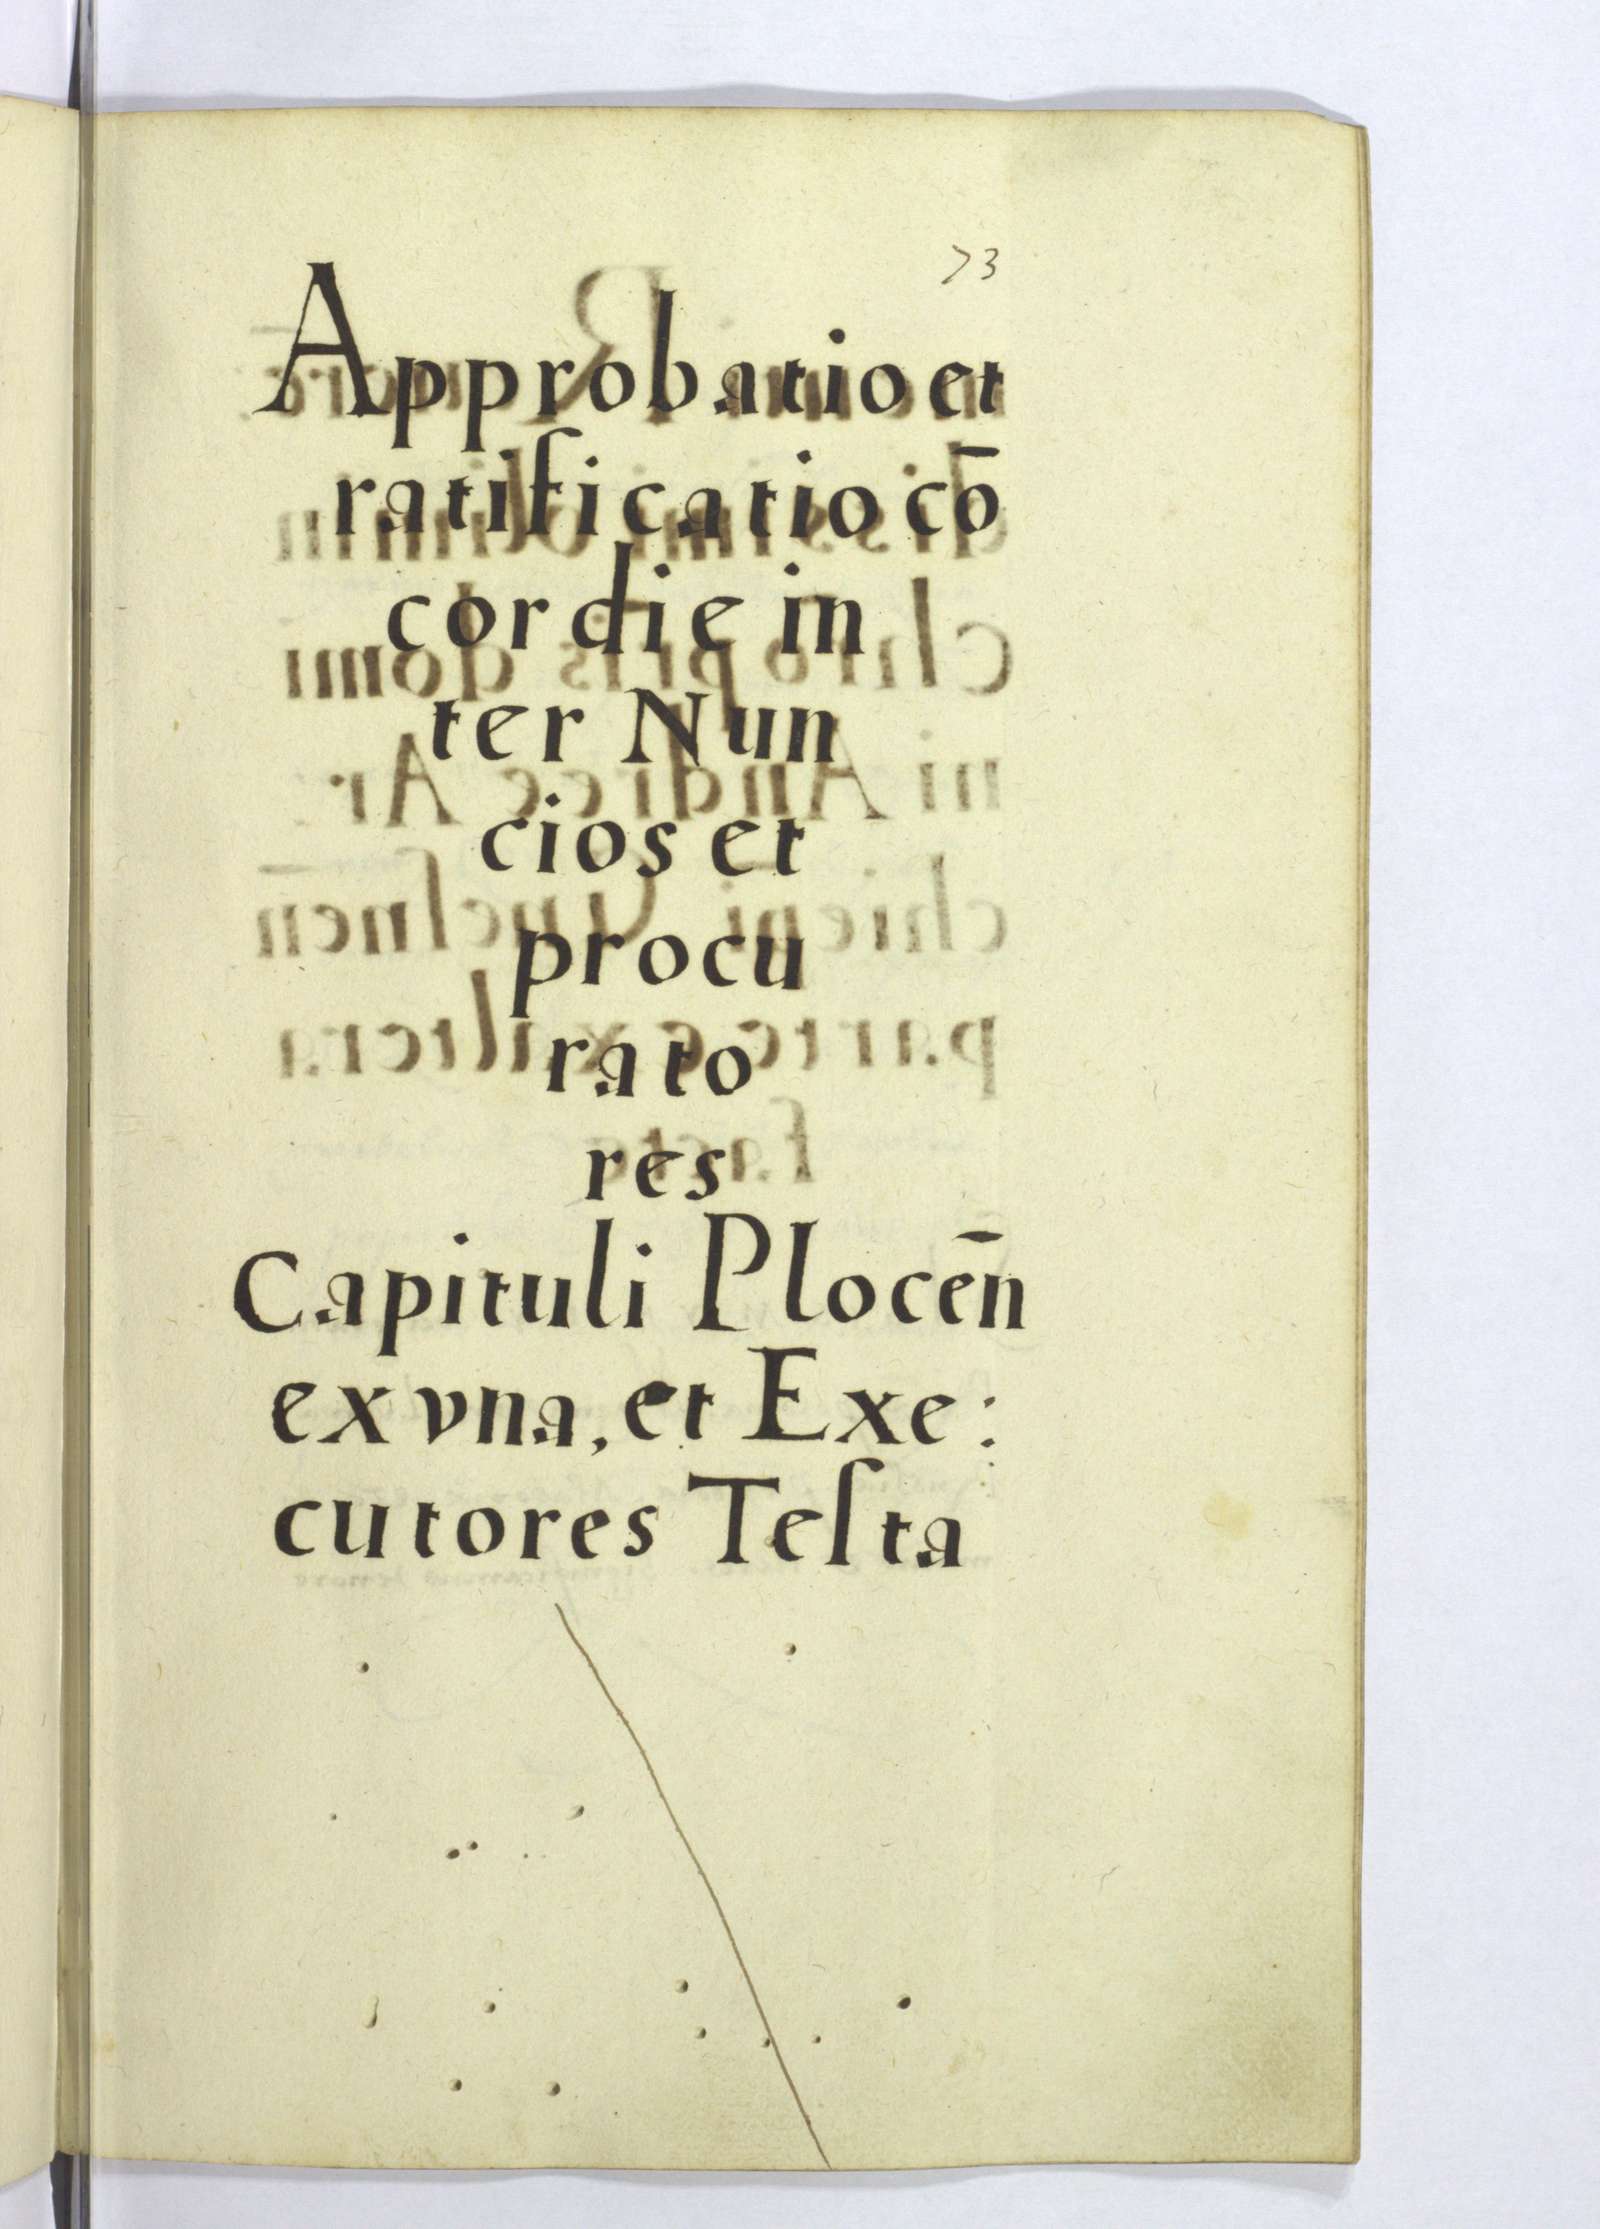 73
Approbatio et
ratificatio cō
cordie in
ter Nun
cios et
procu
rato
res
Capituli Plocen̄
ex vna, et Exe:
cutores Teſta